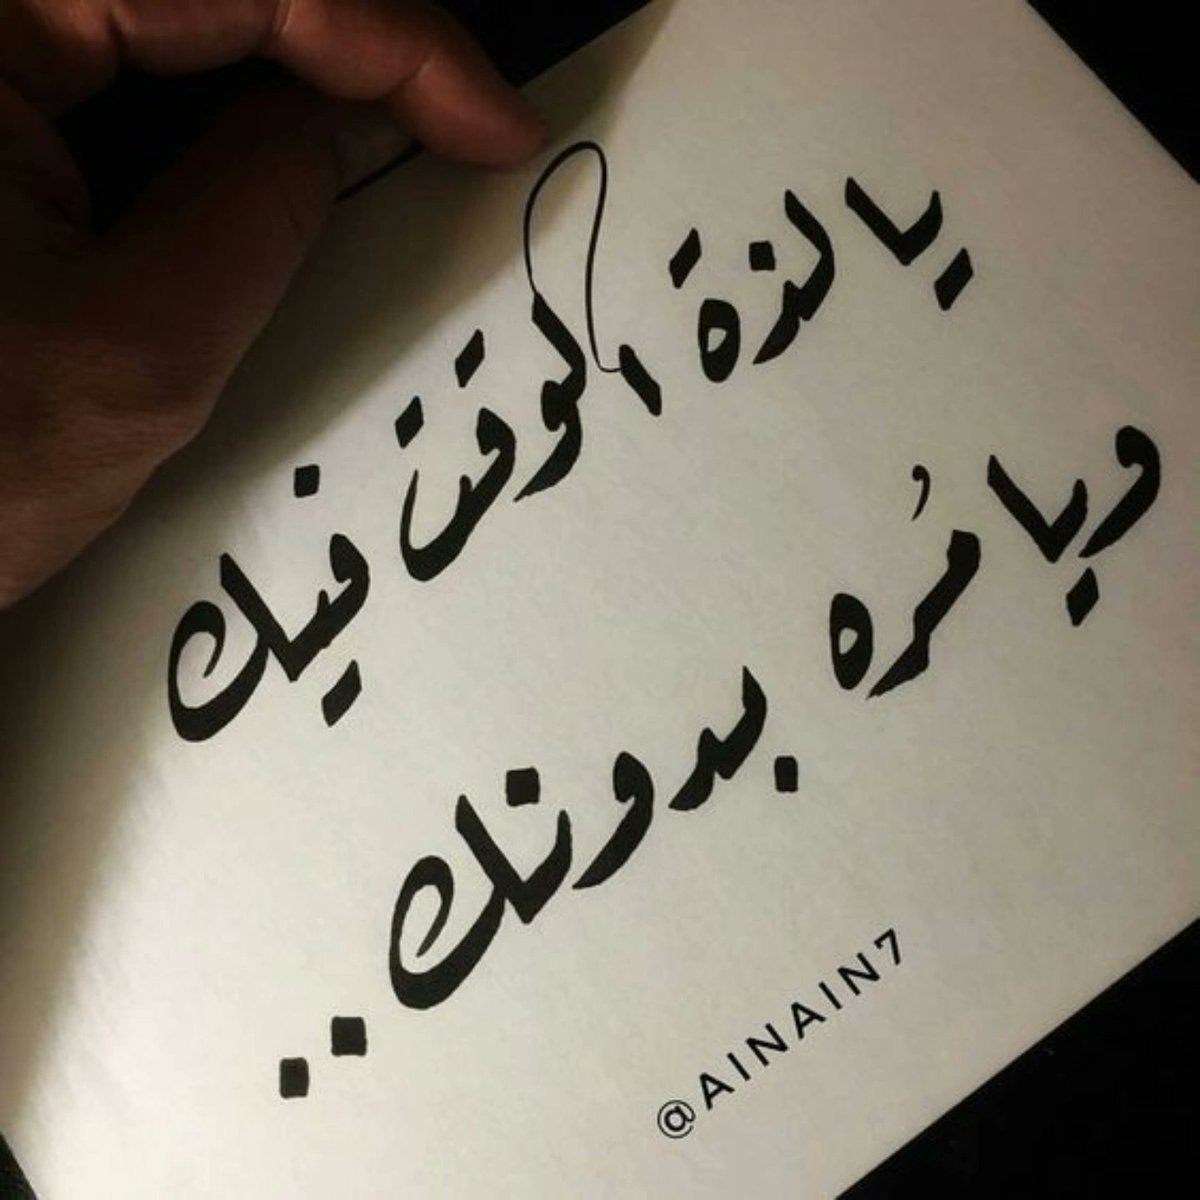 يا لذة الوقت فيك
ويا مُره بدونك..
@AINAIN7